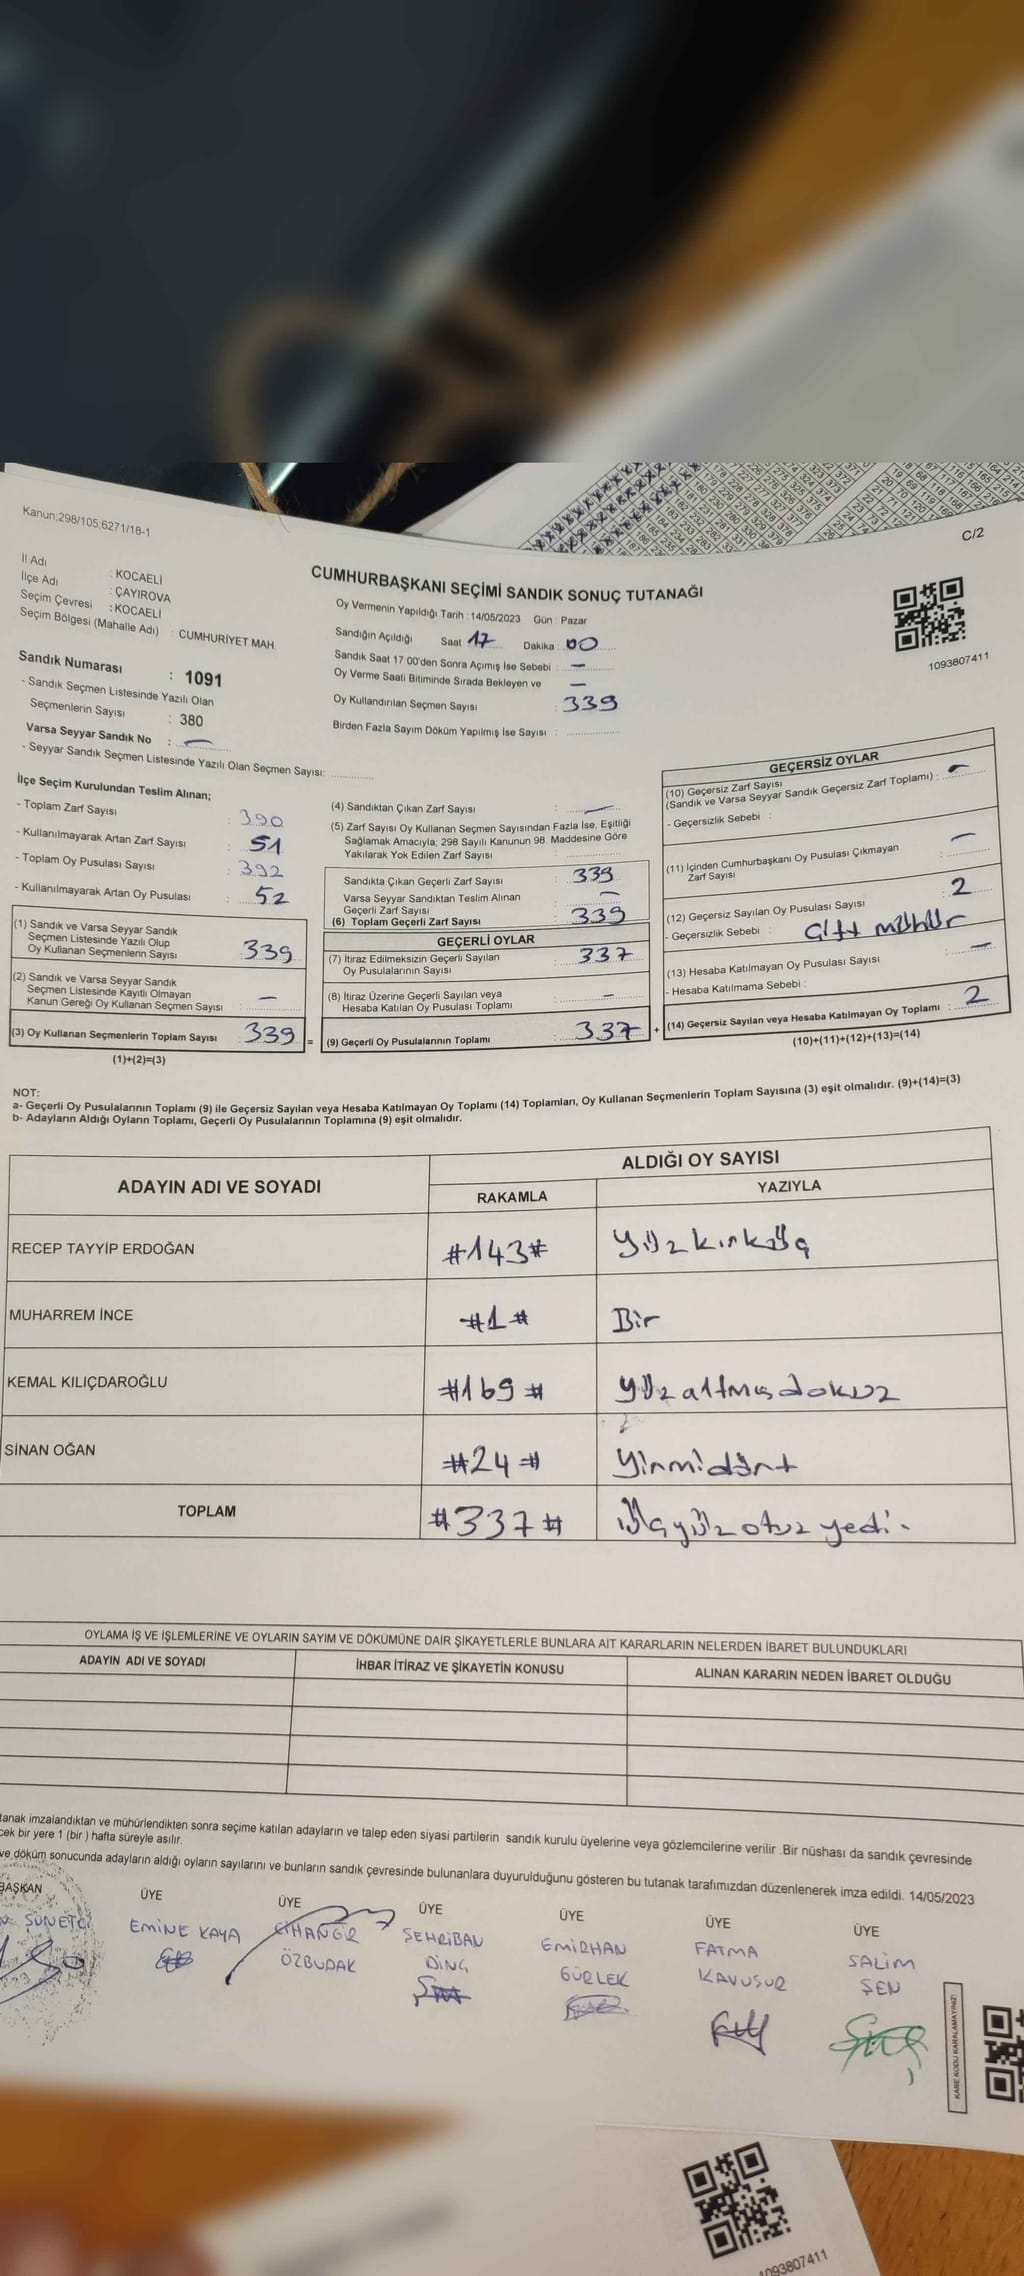 Kanun;298/105;6271/18-1
C/2
İl Adı : KOCAELİ
İlçe Adı : ÇAYIROVA
Seçim Çevresi : KOCAELİ
Seçim Bölgesi (Mahalle Adı) : CUMHURİYET MAH.
Sandık Numarası : 1091
- Sandık Seçmen Listesinde Yazılı Olan
Seçmenlerin Sayısı : 380
Varsa Seyyar Sandık No : —
- Seyyar Sandık Seçmen Listesinde Yazılı Olan Seçmen Sayısı:
CUMHURBAŞKANI SEÇİMİ SANDIK SONUÇ TUTANAĞI
Oy Vermenin Yapıldığı Tarih : 14/05/2023 Gün : Pazar
Sandığın Açıldığı Saat 17 Dakika : 00
Sandık Saat 17:00'den Sonra Açımış İse Sebebi : —
Oy Verme Saati Bitiminde Sırada Bekleyen ve —
Oy Kullandırılan Seçmen Sayısı : 339
Birden Fazla Sayım Döküm Yapılmış İse Sayısı :
1093807411
İlçe Seçim Kurulundan Teslim Alınan;
- Toplam Zarf Sayısı : 390
- Kullanılmayarak Artan Zarf Sayısı : 51
- Toplam Oy Pusulası Sayısı : 392
- Kullanılmayarak Artan Oy Pusulası : 52
(1) Sandık ve Varsa Seyyar Sandık
Seçmen Listesinde Yazılı Olup
Oy Kullanan Seçmenlerin Sayısı : 339
(2) Sandık ve Varsa Seyyar Sandık
Seçmen Listesinde Kayıtlı Olmayan
Kanun Gereği Oy Kullanan Seçmen Sayısı : —
(3) Oy Kullanan Seçmenlerin Toplam Sayısı : 339 =
(1)+(2)=(3)
(4) Sandıktan Çıkan Zarf Sayısı : —
(5) Zarf Sayısı Oy Kullanan Seçmen Sayısından Fazla İse, Eşitliği
Sağlamak Amacıyla; 298 Sayılı Kanunun 98. Maddesine Göre
Yakılarak Yok Edilen Zarf Sayısı :
Sandıkta Çıkan Geçerli Zarf Sayısı : 339
Varsa Seyyar Sandıktan Teslim Alınan
Geçerli Zarf Sayısı : —
(6) Toplam Geçerli Zarf Sayısı : 339
GEÇERLİ OYLAR
(7) İtiraz Edilmeksizin Geçerli Sayılan
Oy Pusulalarının Sayısı : 337
(8) İtiraz Üzerine Geçerli Sayılan veya
Hesaba Katılan Oy Pusulası Toplamı : —
(9) Geçerli Oy Pusulalarının Toplamı : 337 +
GEÇERSİZ OYLAR
(10) Geçersiz Zarf Sayısı
(Sandık ve Varsa Seyyar Sandık Geçersiz Zarf Toplamı) : —
- Geçersizlik Sebebi :
(11) İçinden Cumhurbaşkanı Oy Pusulası Çıkmayan
Zarf Sayısı : —
(12) Geçersiz Sayılan Oy Pusulası Sayısı : 2
- Geçersizlik Sebebi : Çift mühür
(13) Hesaba Katılmayan Oy Pusulası Sayısı : —
- Hesaba Katılmama Sebebi :
(14) Geçersiz Sayılan veya Hesaba Katılmayan Oy Toplamı : 2
(10)+(11)+(12)+(13)=(14)
NOT:
a- Geçerli Oy Pusulalarının Toplamı (9) ile Geçersiz Sayılan veya Hesaba Katılmayan Oy Toplamı (14) Toplamları, Oy Kullanan Seçmenlerin Toplam Sayısına (3) eşit olmalıdır. (9)+(14)=(3)
b- Adayların Aldığı Oyların Toplamı, Geçerli Oy Pusulalarının Toplamına (9) eşit olmalıdır.
ADAYIN ADI VE SOYADI ALDIĞI OY SAYISI
RAKAMLA YAZIYLA
RECEP TAYYİP ERDOĞAN #143# Yüzkırküç
MUHARREM İNCE #1# Bir
KEMAL KILIÇDAROĞLU #169# yüzaltmışdokuz
SİNAN OĞAN #24# Yirmidört
TOPLAM #337# Üçyüzotuzyedi.
OYLAMA İŞ VE İŞLEMLERİNE VE OYLARIN SAYIM VE DÖKÜMÜNE DAİR ŞİKAYETLERLE BUNLARA AİT KARARLARIN NELERDEN İBARET BULUNDUKLARI
ADAYIN ADI VE SOYADI İHBAR İTİRAZ VE ŞİKAYETİN KONUSU ALINAN KARARIN NEDEN İBARET OLDUĞU
tanak imzalandıktan ve mühürlendikten sonra seçime katılan adayların ve talep eden siyasi partilerin sandık kurulu üyelerine veya gözlemcilerine verilir .Bir nüshası da sandık çevresinde
cek bir yere 1 (bir ) hafta süreyle asılır.
ve döküm sonucunda adayların aldığı oyların sayılarını ve bunların sandık çevresinde bulunanlara duyurulduğunu gösteren bu tutanak tarafımızdan düzenlenerek imza edildi. 14/05/2023
BAŞKAN ÜYE ÜYE ÜYE ÜYE ÜYE ÜYE
SÜNETCİ EMİNE KAYA CİHANGİR ŞEHRİBAN EMİRHAN FATMA SALİM
ÖZBUDAK DİNÇ GÜRLEK KAVUŞUR ŞEN
KARE KODU KARALAMAYINIZ!
1093807411